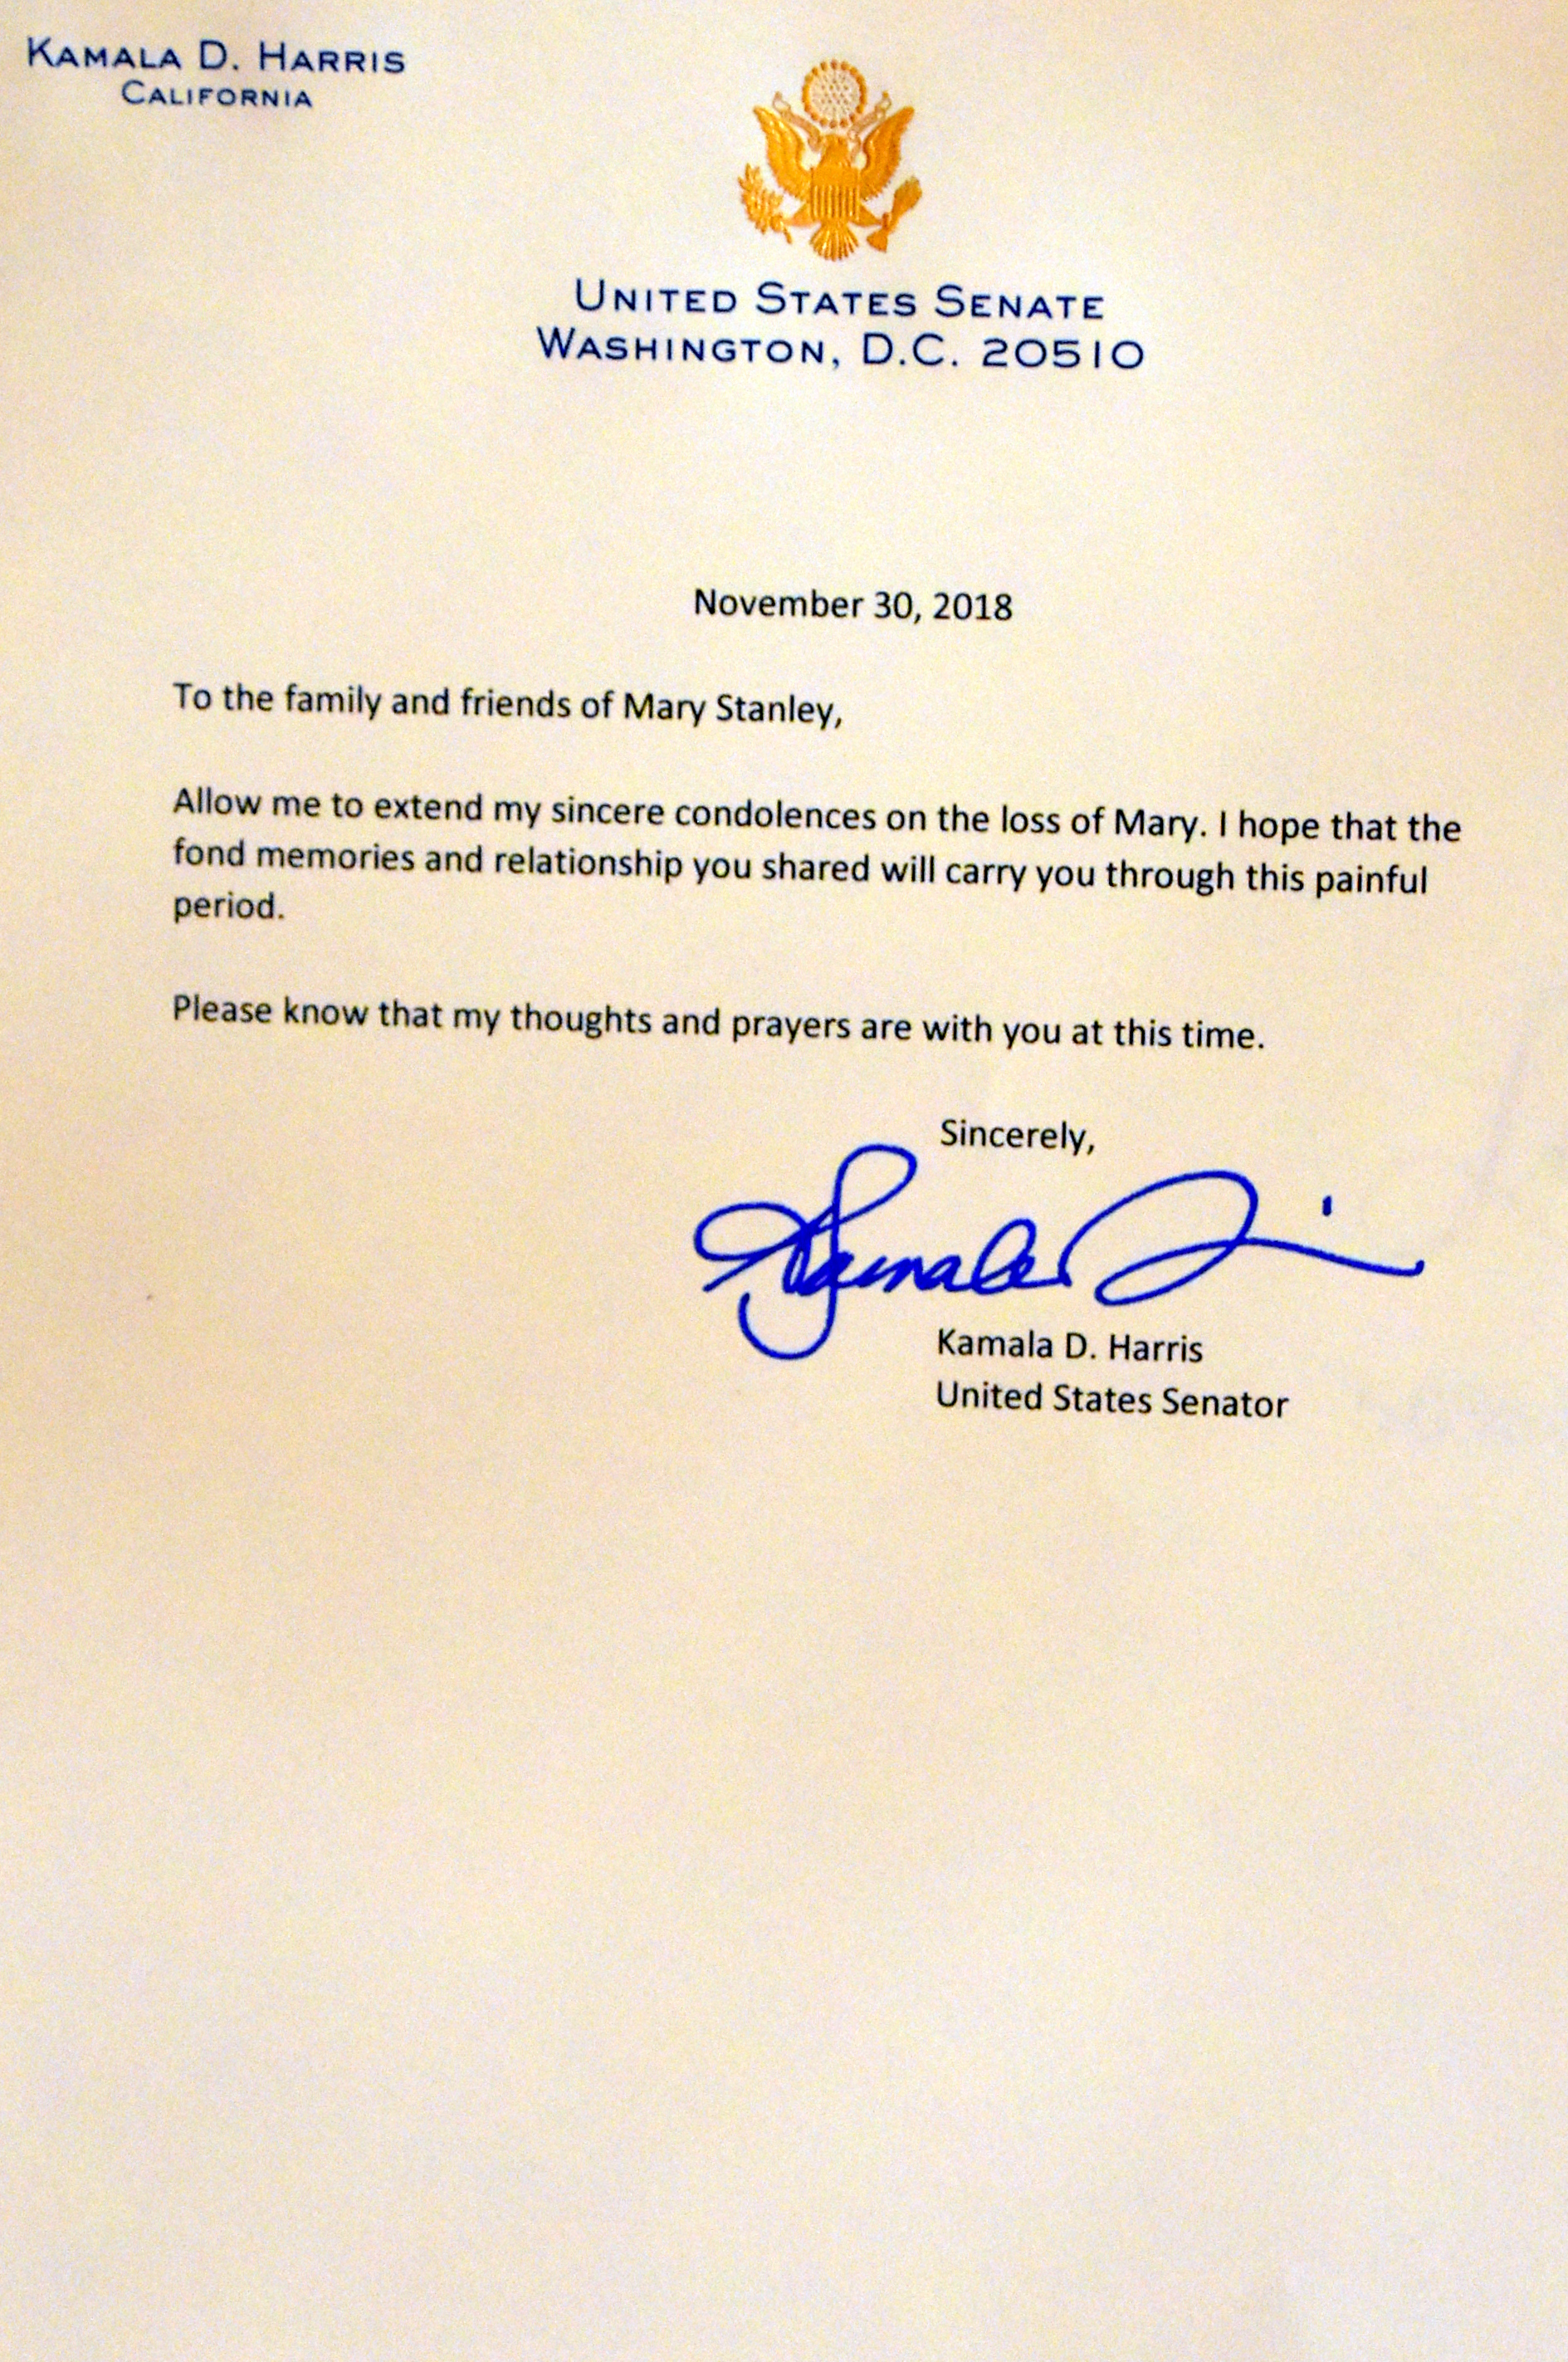 KAMALA D. HARRIS
CALIFORNIA
UNITED STATES SENATE
WASHINGTON, D.C. 20510
November 30, 2018
To the family and friends of Mary Stanley,
Allow me to extend my sincere condolences on the loss of Mary. I hope that the
fond memories and relationship you shared will carry you through this painful
period.
Please know that my thoughts and prayers are with you at this time.
Sincerely,
Kamala D. Harris
United States Senator